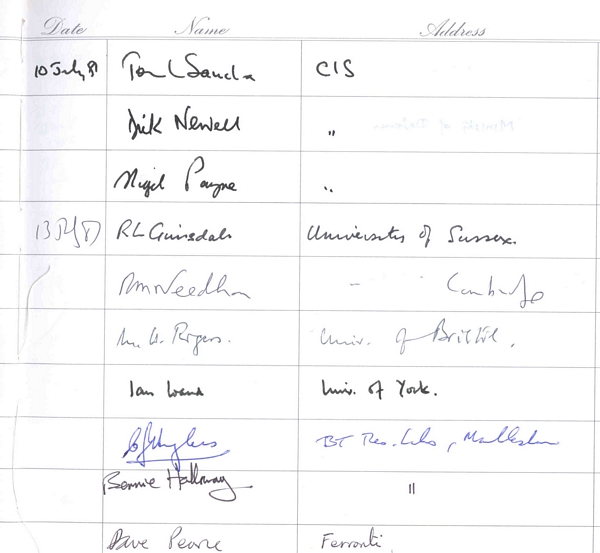 Date Name Address
10 July 81 CIS
Dick Newell "
Nigel Payne "
13 July RL Grimsdale University of Sussex.
RM Needham - Cambridge
M. W. Rogers. Univ. of Bristol.
Ian Wand Univ. of York.
BT Res. Labs, Martlesham
Bernie Holloway "
Dave Pearce Ferranti